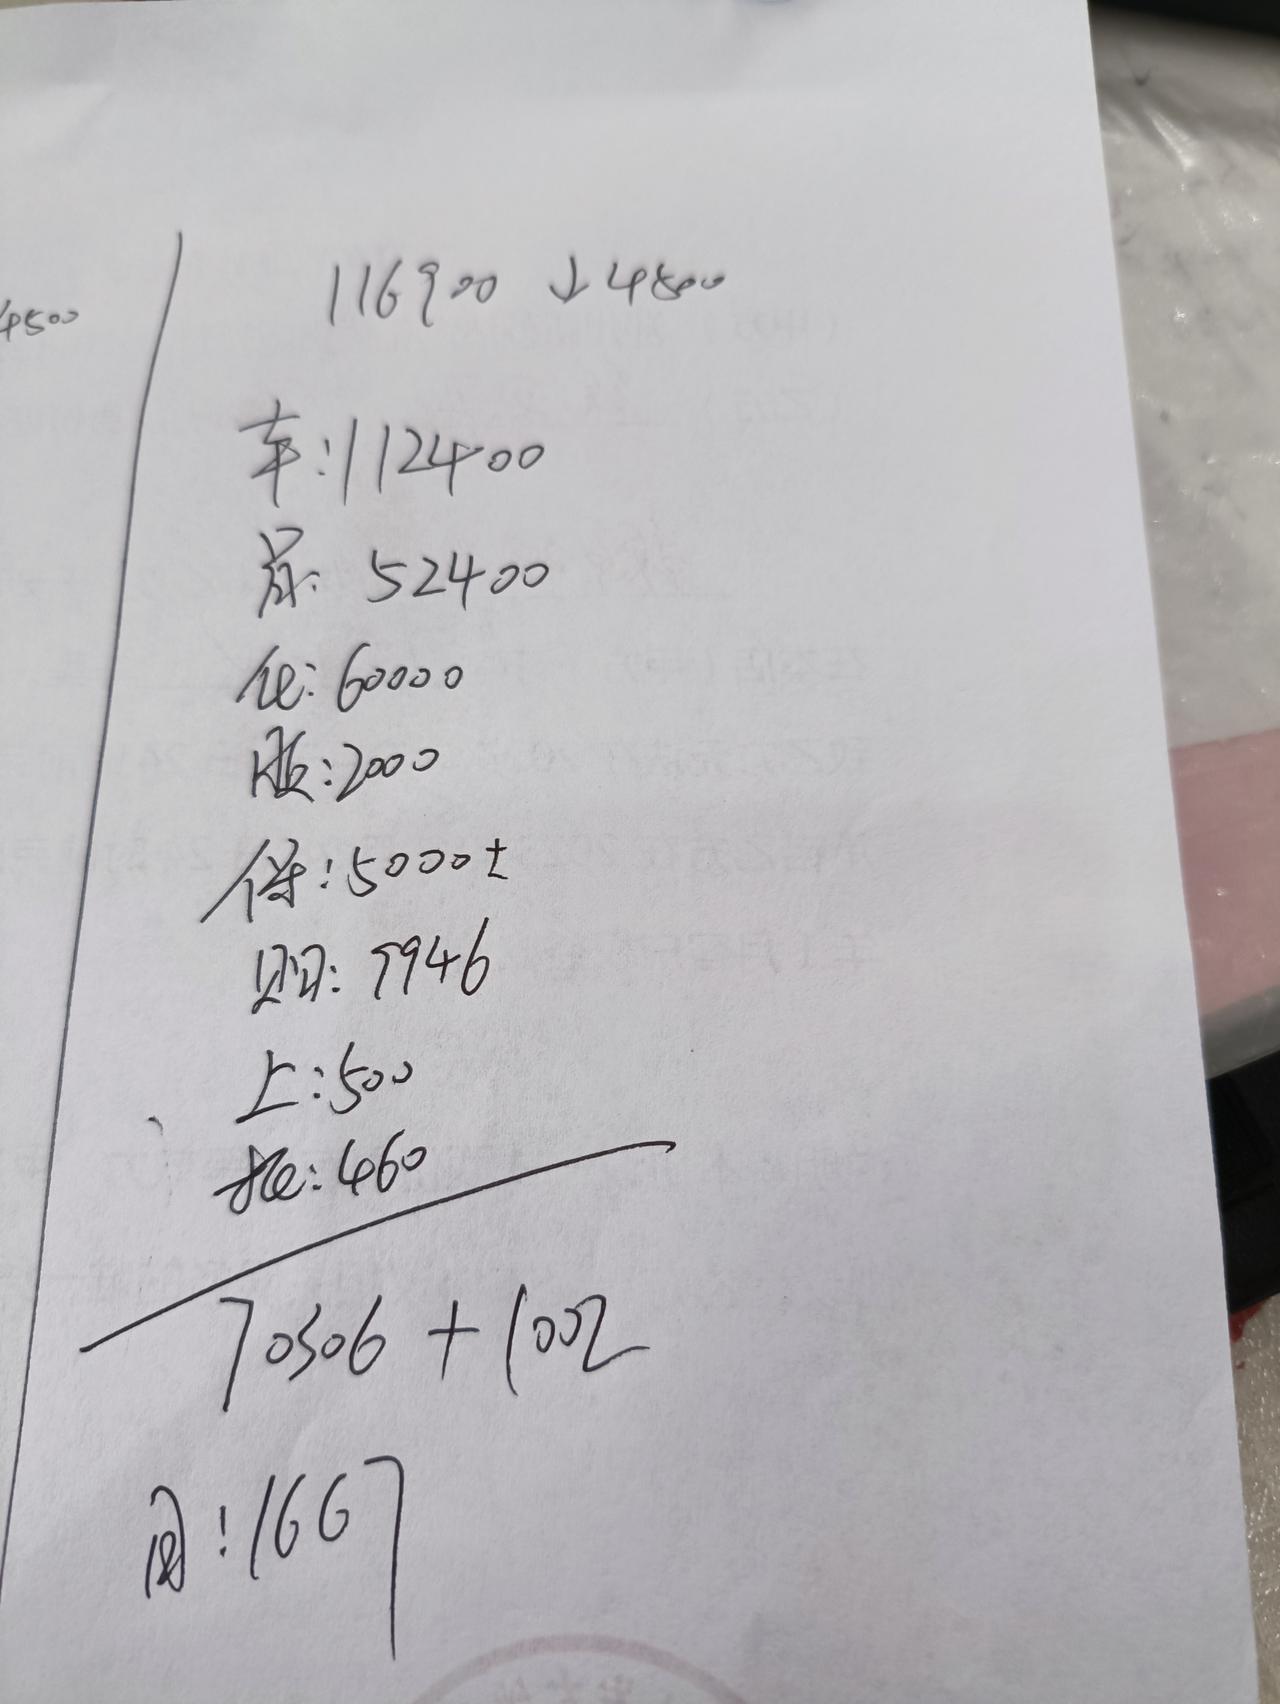 4500
116900 ↓4500
车:112400
首: 52400
贷: 60000
服:2000
保:5000±
购: 9946
上:500
抵:460
70306 + 1002
月:1667